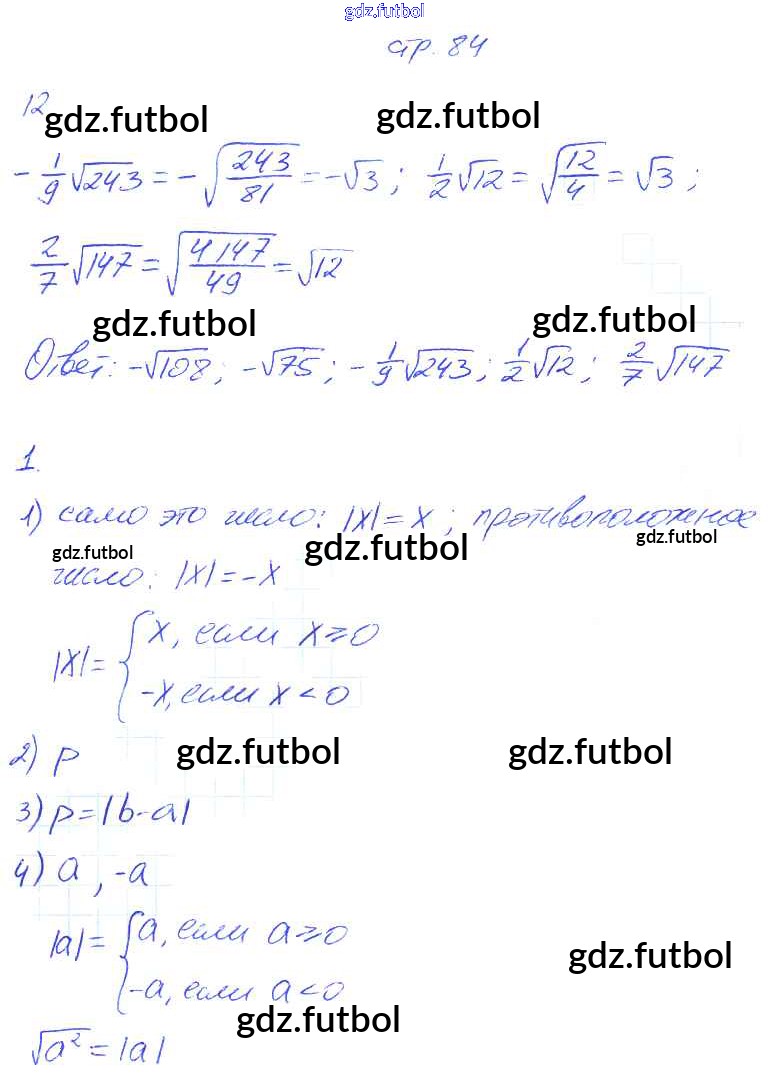 gdz.futbol
стр. 84
12
gdz.futbol gdz.futbol
-1/9√243 = -√(243/81) = -√3 ; 1/2√12 = √(12/4) = √3 ;
2/7√147 = √(4·147/49) = √12
gdz.futbol gdz.futbol
Ответ: -√108 ; -√75 ; -1/9√243 ; 1/2√12 ; 2/7√147
1.
1) само это число: |x| = x ; противоположное
gdz.futbol gdz.futbol gdz.futbol
число: |x| = -x
|x| = { x, если x ≥ 0
-x, если x < 0
2) p
gdz.futbol gdz.futbol
3) p = |b-a|
4) a , -a
|a| = { a, если a ≥ 0
gdz.futbol
-a, если a < 0
gdz.futbol
√a² = |a|